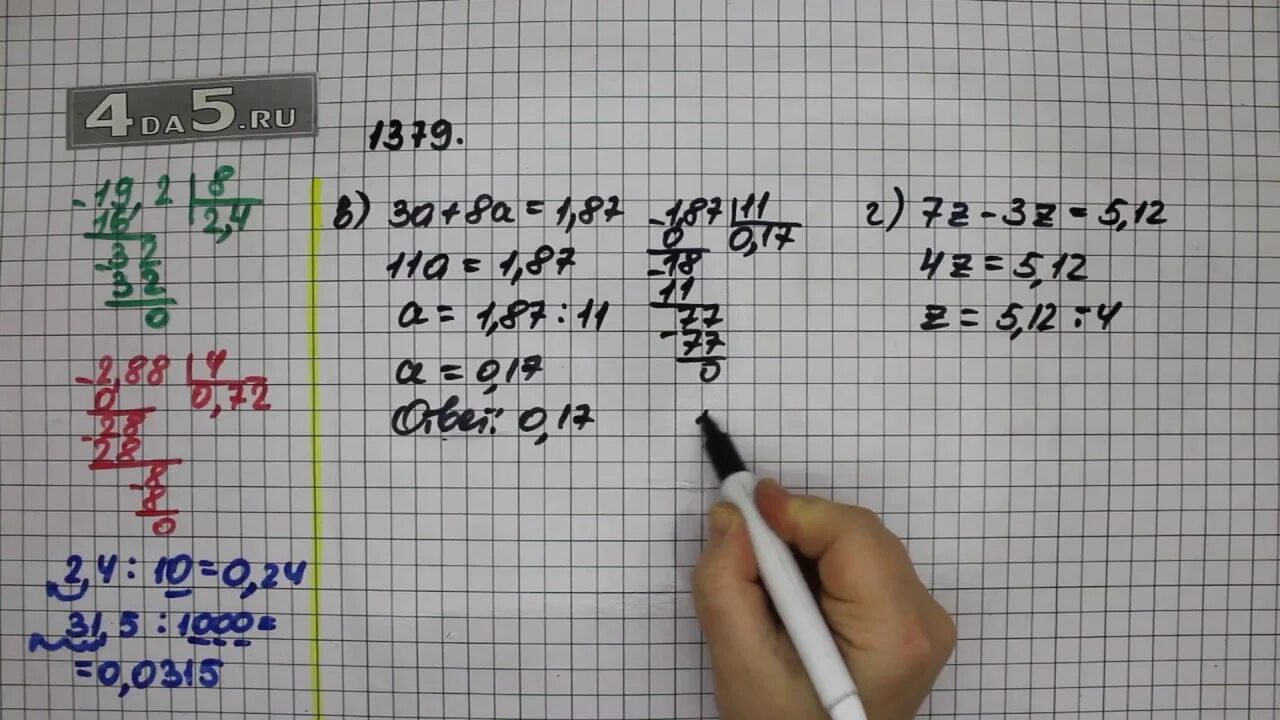 4DA5.RU
1379.
19,2 | 8
16 2,4
- 32
32
0
- 2,88 | 4
0 0,72
- 28
28
- 8
8
0
2,4 : 10 = 0,24
31,5 : 1000 =
= 0,0315
в) 3a + 8a = 1,87
11a = 1,87
a = 1,87 : 11
a = 0,17
Ответ: 0,17
- 1,87 | 11
0 0,17
- 18
11
- 77
77
0
г) 7z - 3z = 5,12
4z = 5,12
z = 5,12 : 4